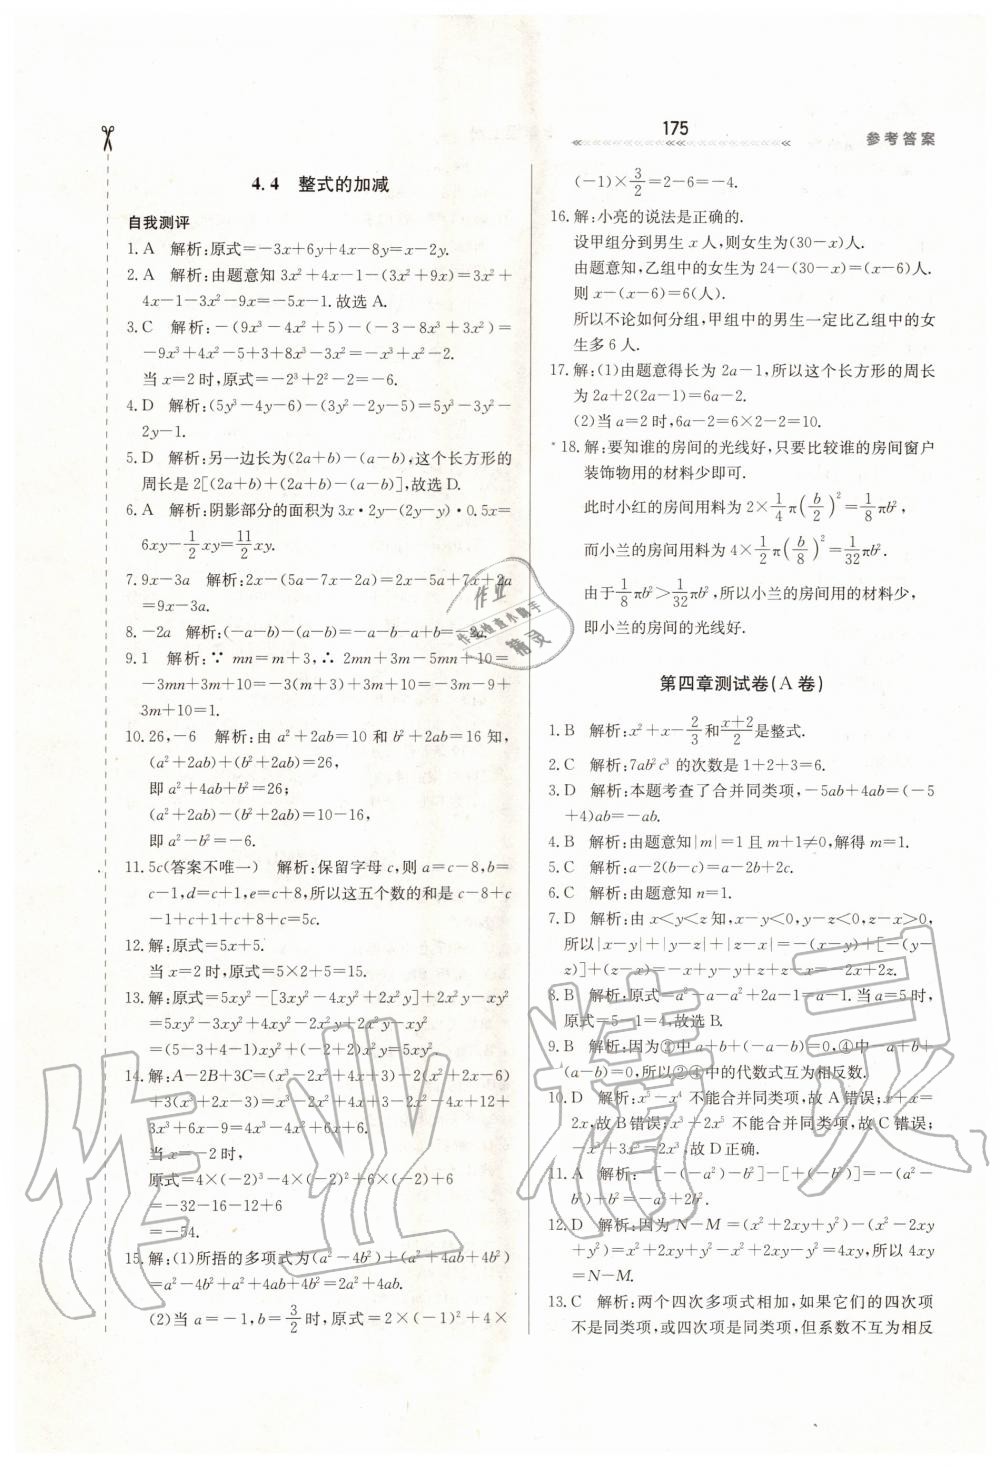 175
参考答案
4.4 整式的加减
自我测评
1. A 解析:原式=-3x+6y+4x-8y=x-2y.
2. A 解析:由题意知 3x²+4x-1-(3x²+9x)=3x²+
4x-1-3x²-9x=-5x-1.故选 A.
3. C 解析:-(9x³-4x²+5)-(-3-8x³+3x²)=
-9x³+4x²-5+3+8x³-3x²=-x³+x²-2.
当 x=2 时,原式=-2³+2²-2=-6.
4. D 解析:(5y³-4y-6)-(3y²-2y-5)=5y³-3y²-
2y-1.
5. D 解析:另一边长为(2a+b)-(a-b),这个长方形的
周长是 2[(2a+b)+(2a+b)-(a-b)],故选 D.
6. A 解析:阴影部分的面积为 3x·2y-(2y-y)·0.5x=
6xy-1/2xy=11/2xy.
7. 9x-3a 解析:2x-(5a-7x-2a)=2x-5a+7x+2a
=9x-3a.
8. -2a 解析:(-a-b)-(a-b)=-a-b-a+b=-2a.
9. 1 解析:∵mn=m+3,∴2mn+3m-5mn+10=
-3mn+3m+10=-3(m+3)+3m+10=-3m-9+
3m+10=1.
10. 26,-6 解析:由 a²+2ab=10 和 b²+2ab=16 知,
(a²+2ab)+(b²+2ab)=26,
即 a²+4ab+b²=26;
(a²+2ab)-(b²+2ab)=10-16,
即 a²-b²=-6.
11. 5c(答案不唯一) 解析:保留字母 c,则 a=c-8,b=
c-1,d=c+1,e=c+8,所以这五个数的和是 c-8+c
-1+c+c+1+c+8=5c.
12. 解:原式=5x+5.
当 x=2 时,原式=5×2+5=15.
13. 解:原式=5xy²-[3xy²-4xy²+2x²y]+2x²y-xy²
=5xy²-3xy²+4xy²-2x²y+2x²y-xy²
=(5-3+4-1)xy²+(-2+2)x²y=5xy².
14. 解:A-2B+3C=(x³-2x²+4x+3)-2(x²+2x-6)
+3(x³+2x-3)=x³-2x²+4x+3-2x²-4x+12+
3x³+6x-9=4x³-4x²+6x+6.
当 x=-2 时,
原式=4×(-2)³-4×(-2)²+6×(-2)+6
=-32-16-12+6
=-54.
15. 解:(1)所捂的多项式为(a²-4b²)+(a²+4ab+4b²)
=a²-4b²+a²+4ab+4b²=2a²+4ab.
(2)当 a=-1,b=3/2时,原式=2×(-1)²+4×
(-1)×3/2=2-6=-4.
16. 解:小亮的说法是正确的.
设甲组分到男生 x 人,则女生为(30-x)人.
由题意知,乙组中的女生为 24-(30-x)=(x-6)人.
则 x-(x-6)=6(人).
所以不论如何分组,甲组中的男生一定比乙组中的女
生多 6 人.
17. 解:(1)由题意得长为 2a-1,所以这个长方形的周长
为 2a+2(2a-1)=6a-2.
(2)当 a=2 时,6a-2=6×2-2=10.
*18. 解:要知谁的房间的光线好,只要比较谁的房间窗户
装饰物用的材料少即可.
此时小红的房间用料为 2×1/4π(b/2)²=1/8πb²,
而小兰的房间用料为 4×1/2π(b/8)²=1/32πb².
由于1/8πb²>1/32πb²,所以小兰的房间用的材料少,
即小兰的房间的光线好.
第四章测试卷(A 卷)
1. B 解析:x²+x-2/3和(x+2)/2是整式.
2. C 解析:7ab²c³ 的次数是 1+2+3=6.
3. D 解析:本题考查了合并同类项,-5ab+4ab=(-5
+4)ab=-ab.
4. B 解析:由题意知|m|=1 且 m+1≠0,解得 m=1.
5. C 解析:a-2(b-c)=a-2b+2c.
6. C 解析:由题意知 n=1.
7. D 解析:由 x<y<z 知,x-y<0,y-z<0,z-x>0,
所以|x-y|+|y-z|+|z-x|=-(x-y)+[-(y-
z)]+(z-x)=-x+y-y+z+z-x=-2x+2z.
8. B 解析:原式=a²-a-a²+2a-1=a-1.当 a=5 时,
原式=5-1=4,故选 B.
9. B 解析:因为②中 a+b+(-a-b)=0,④中 -a+b+
(a-b)=0,所以②④中的代数式互为相反数.
10. D 解析:x⁵-x⁴ 不能合并同类项,故 A 错误;x+x=
2x,故 B 错误;x³+2x⁵ 不能合并同类项,故 C 错误;
-x³+3x³=2x³,故 D 正确.
11. A 解析:[-(-a²)-b²]-[+(-b²)]=(a²-
b²)+b²=-a²+2b².
12. D 解析:因为 N-M=(x²+2xy+y²)-(x²-2xy
+y²)=x²+2xy+y²-x²+2xy-y²=4xy,所以 4xy
=N-M.
13. C 解析:两个四次多项式相加,如果它们的四次项
不是同类项,或四次项是同类项,但系数不互为相反
作业
作业检查小助手
精灵
作业精灵